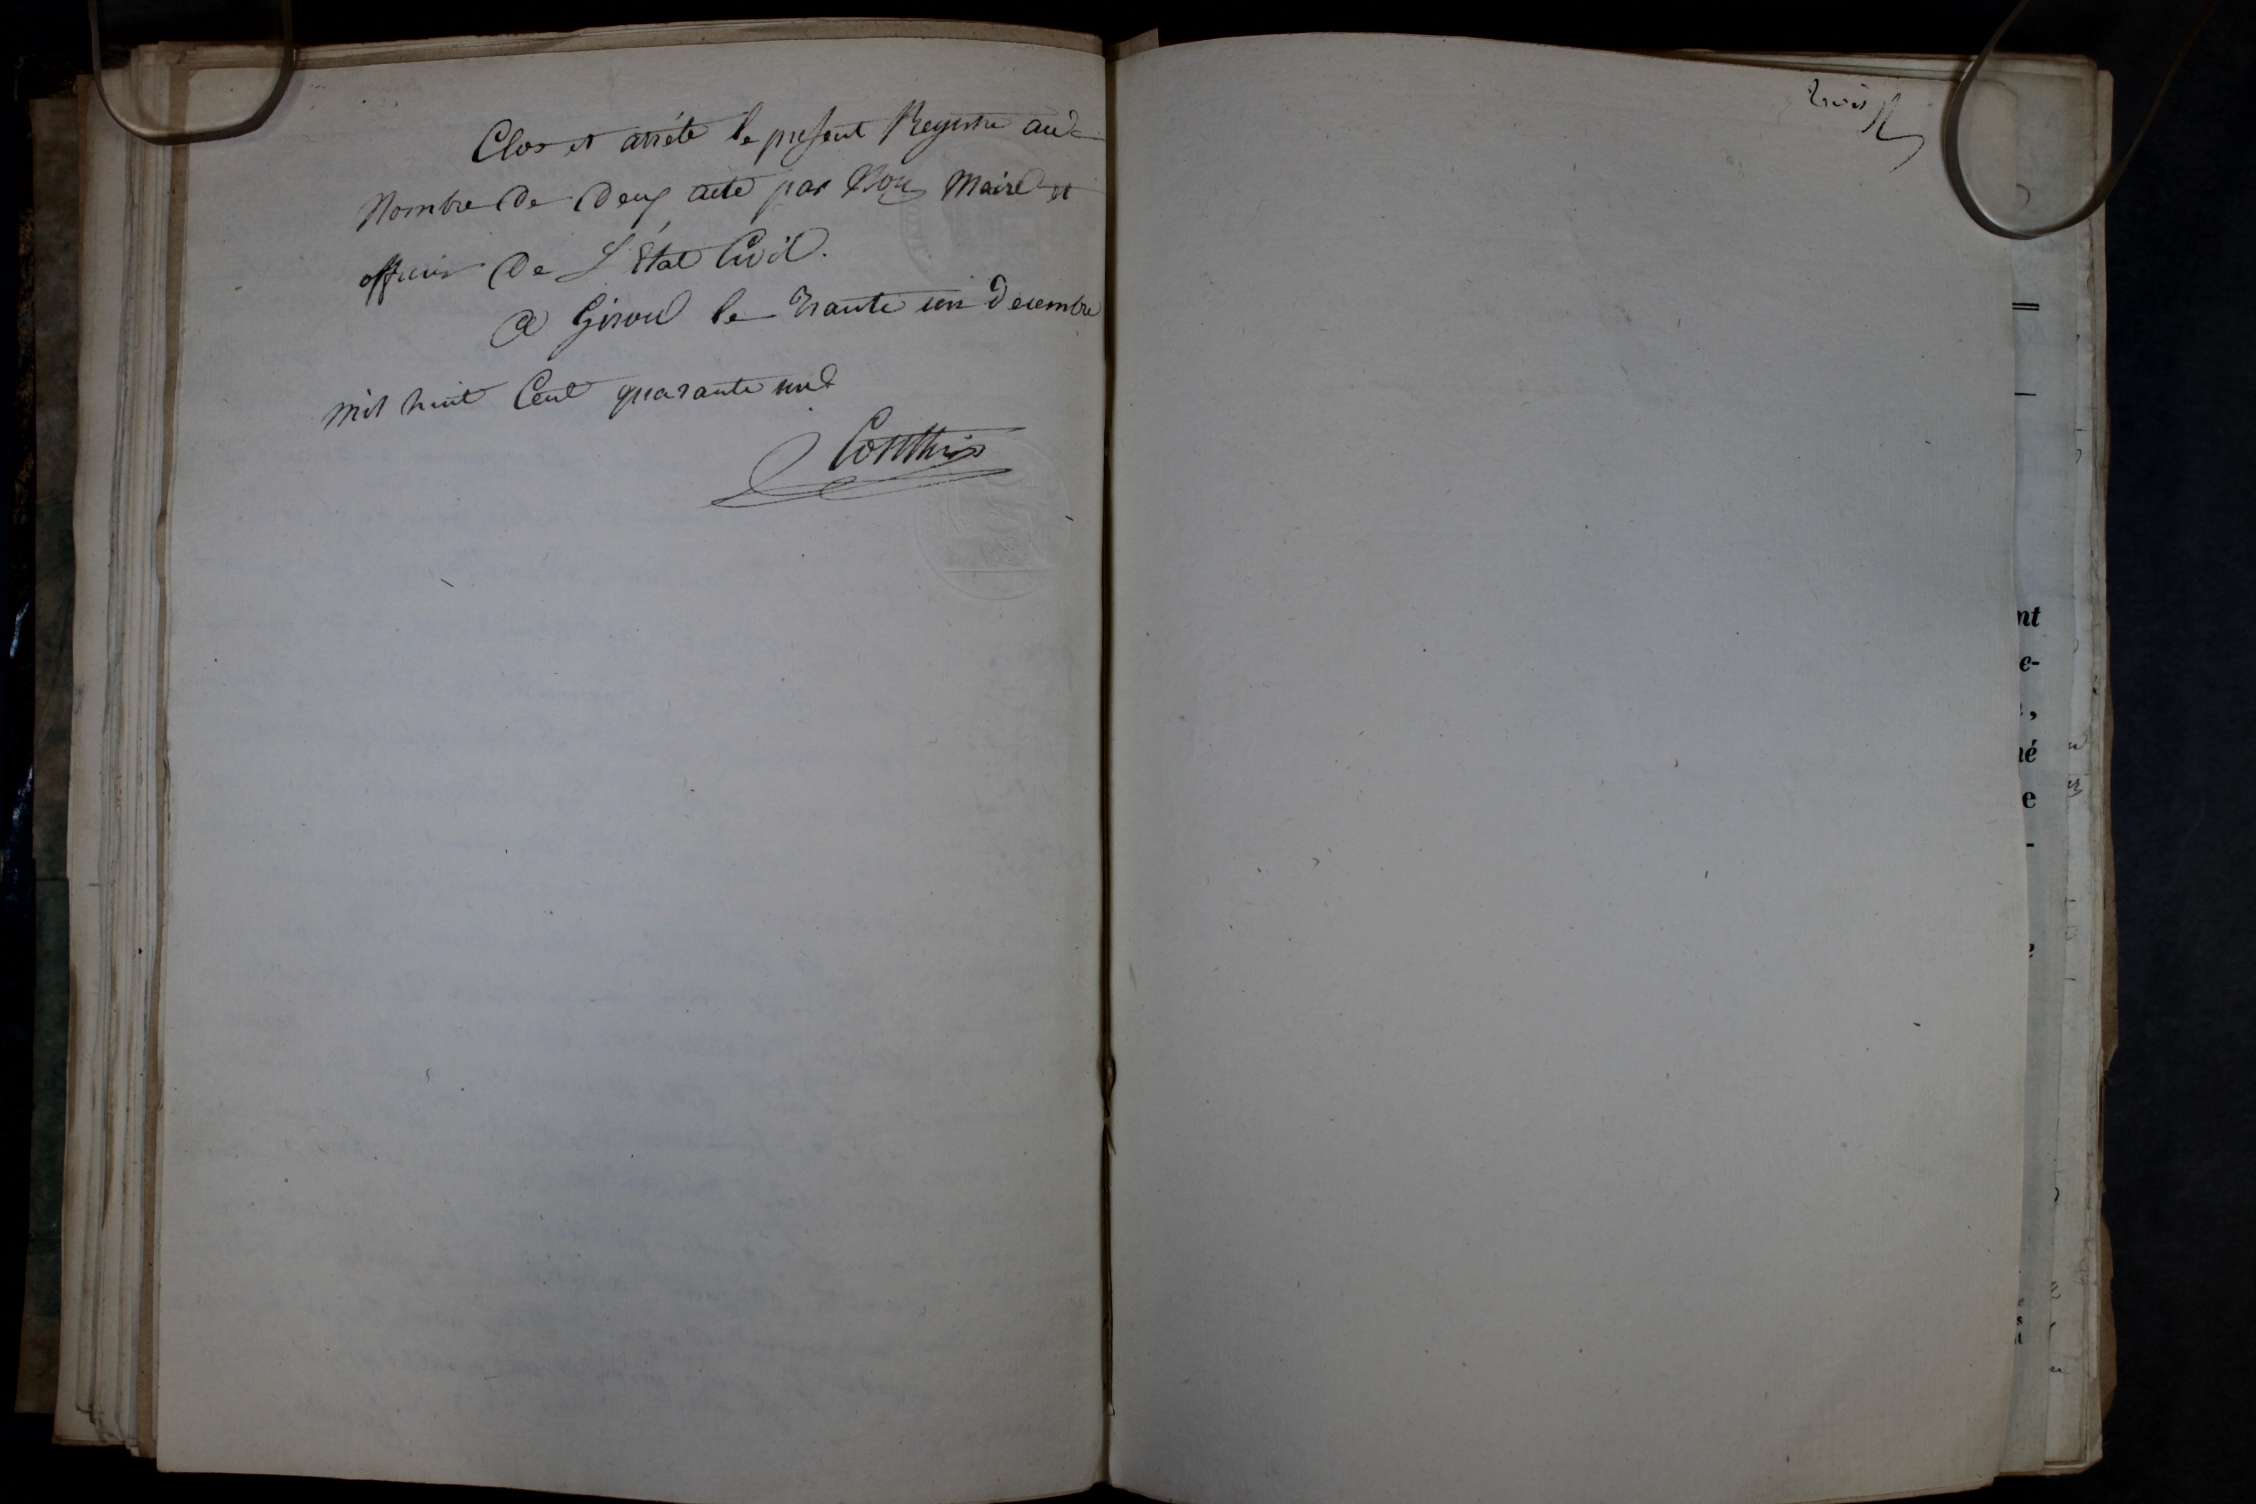 Clos et arrété le present Registre au
Nombre de deux acte par Nous Maire et
officier de L'état Civil.
A Giroul le trante un Decembre
mil huit Cent quarante un
trois
nt
e-
,
né
e
-